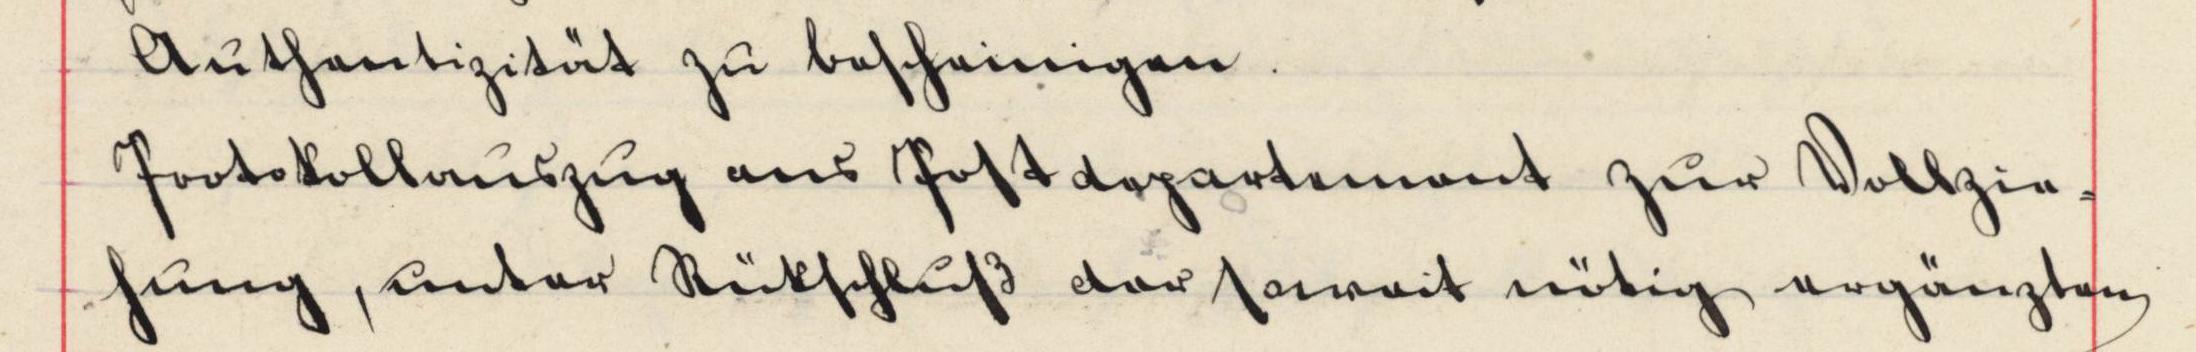 Authentizität zu bescheinigen.
Protokollauszug ans Postdepartement zur Vollzie=
hung, unter Rükschluß der soweit nötig ergänzten